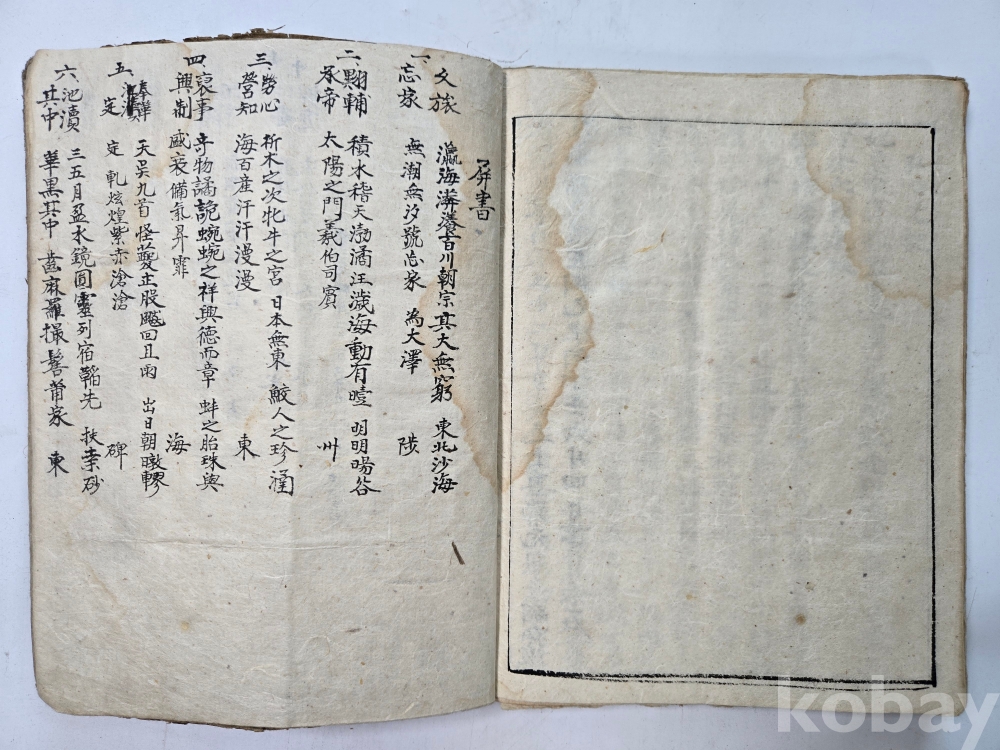 屛書
一、文族 瀛海漭瀁百川朝宗其大無窮 東北沙海
忘家 無潮無汐號忘家 為大澤 陟
二、輔 積水稽天渤潏汪濊海動有曀 明明暘谷
承帝 太陽之門羲伯司賓 州
三、勞心 析木之次牝牛之宮 日本無東 鮫人之珍 涵
營知 海百産汗汗漫漫 東
四、哀事 奇物譎詭蜿蜿之祥興德而章 蚌之胎珠與
興制 盛衰備氣昇霏 海
五、 天吳九首怪夔疋股颷回且雨 出日朝暾轇
定 定 軋炫煌紫赤滄滄 碑
六、池瀆 三五月盈水鏡圓靈列宿韜先 扶桒砂
其中 華黑其中 齒麻羅撮髻莆家 東
kobay